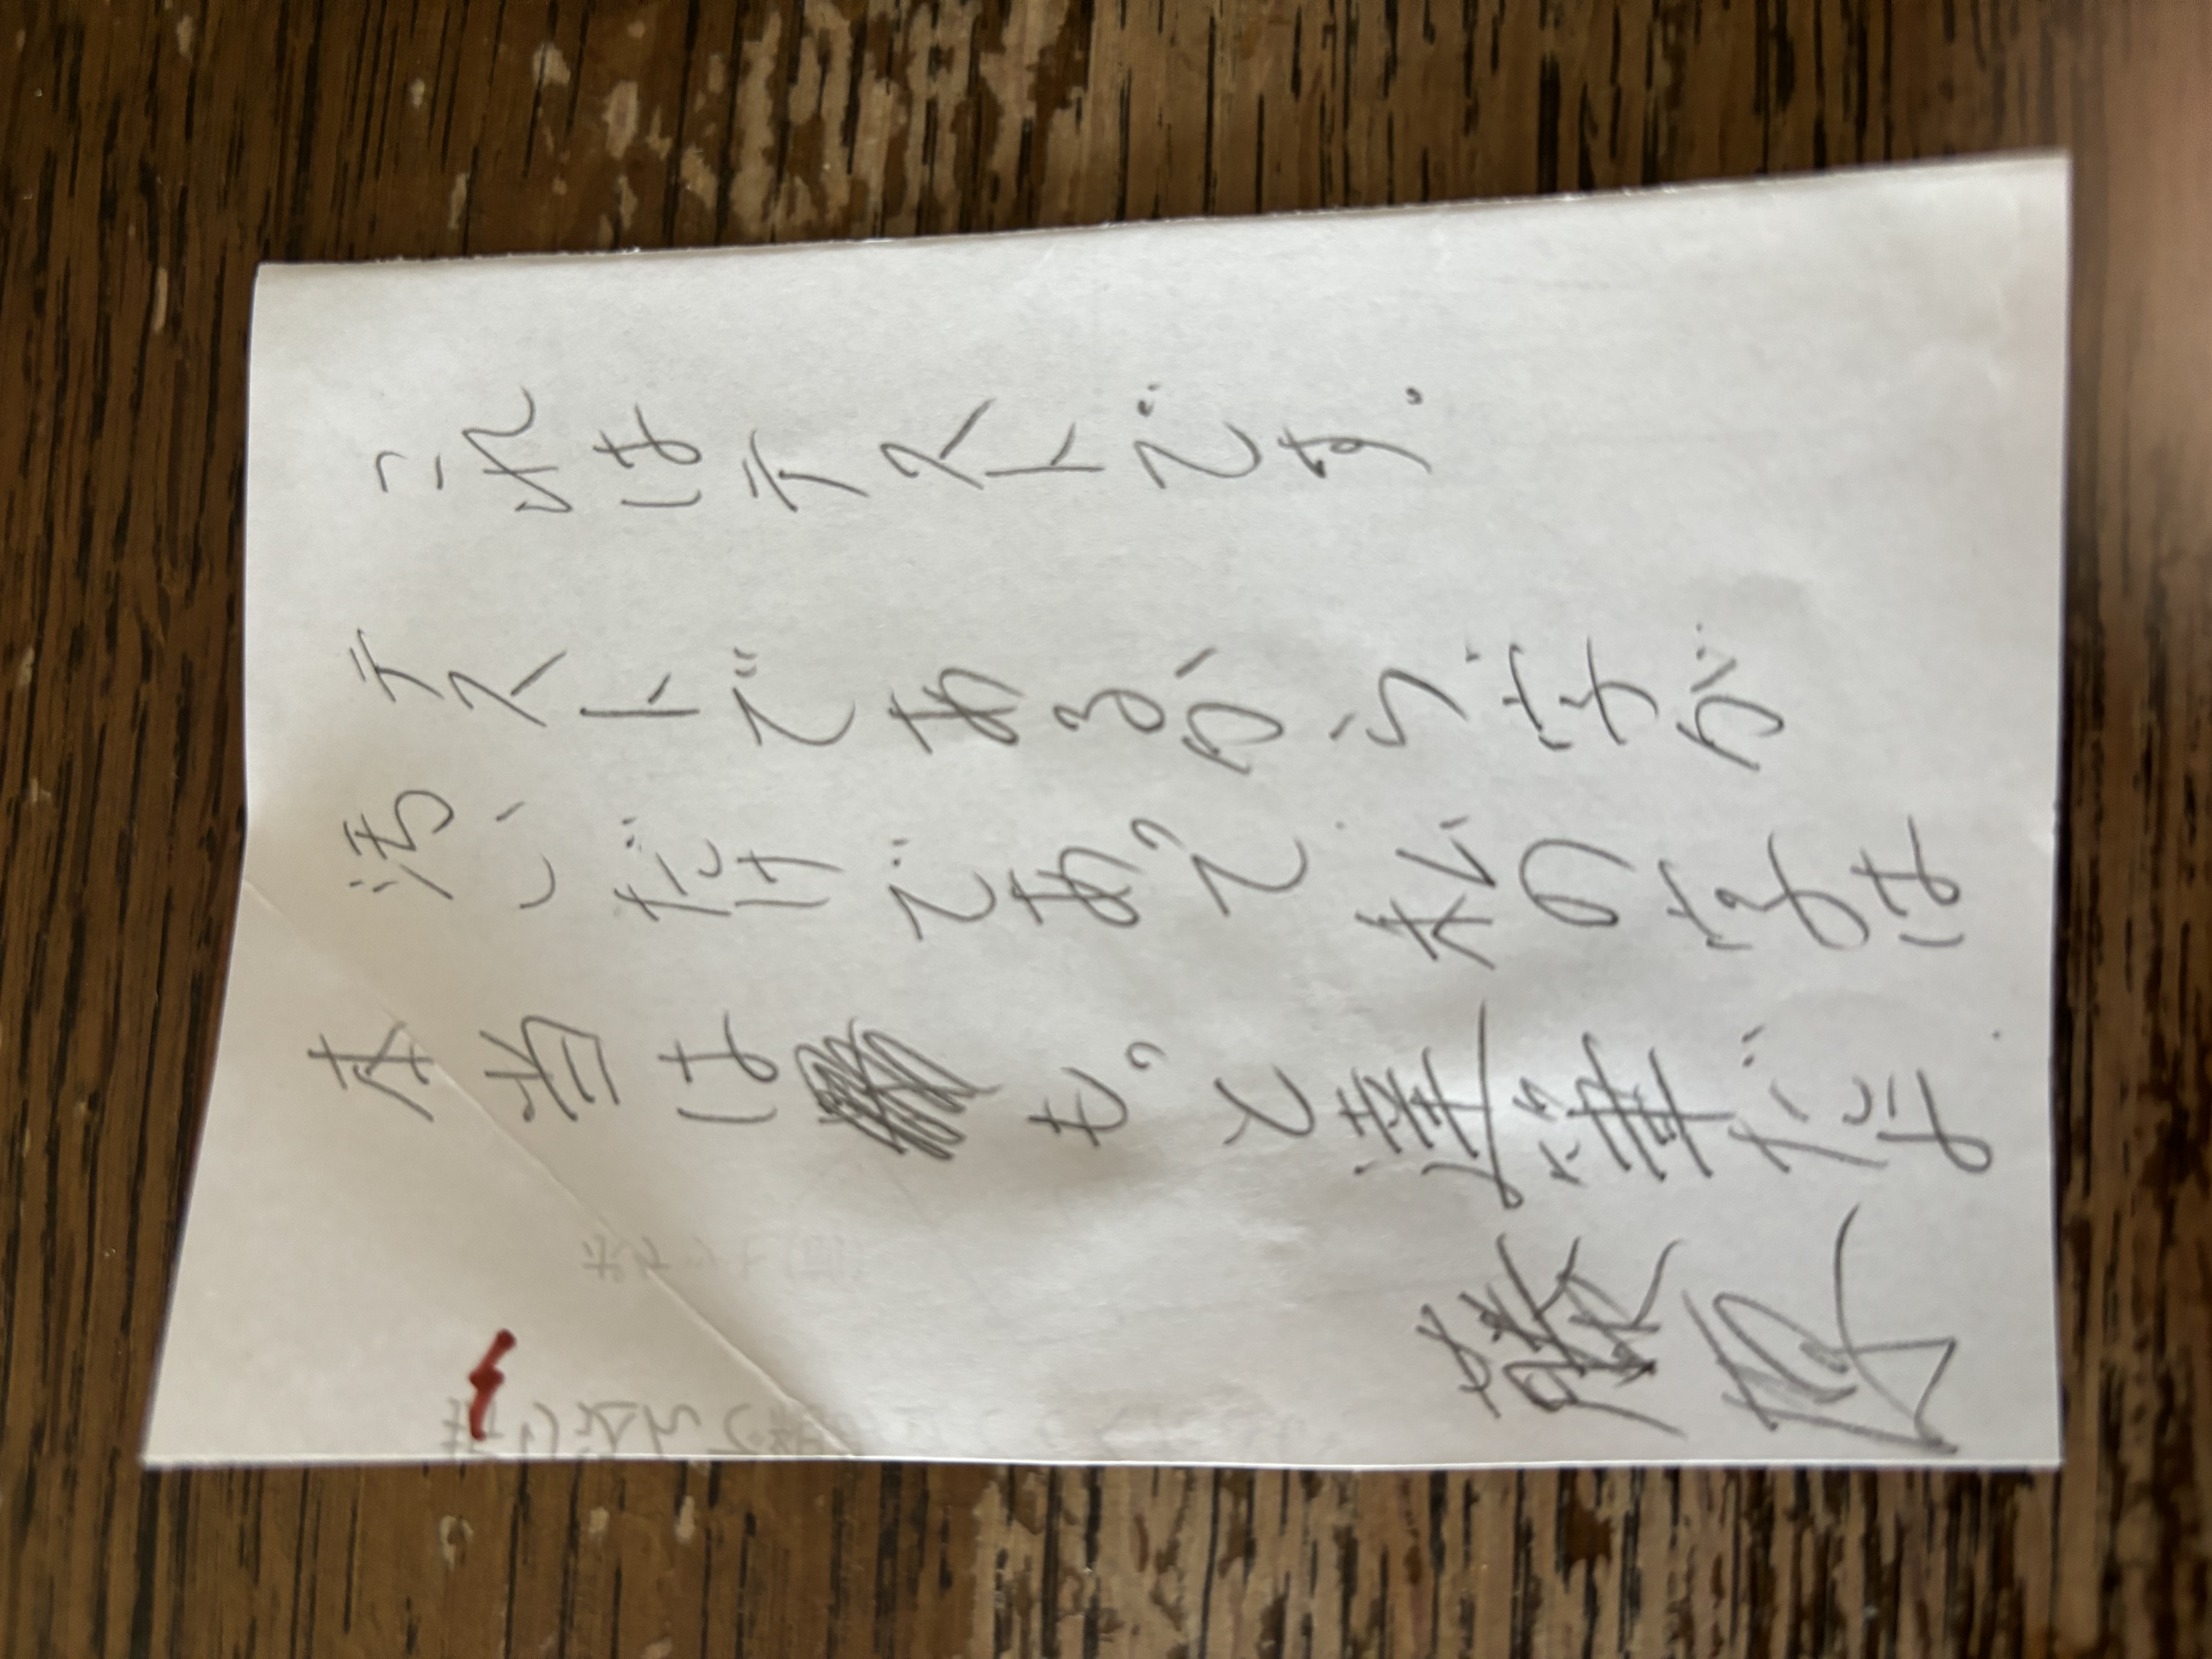 これはテストです。
テストであるから、字が
汚いだけであって、私の字は
本当はもっと達筆だよ.
藤原